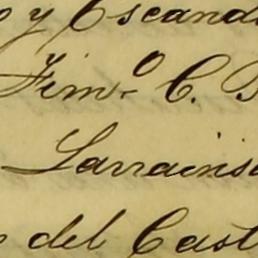 y Escand
Jimº C.
Larrains
del Cast